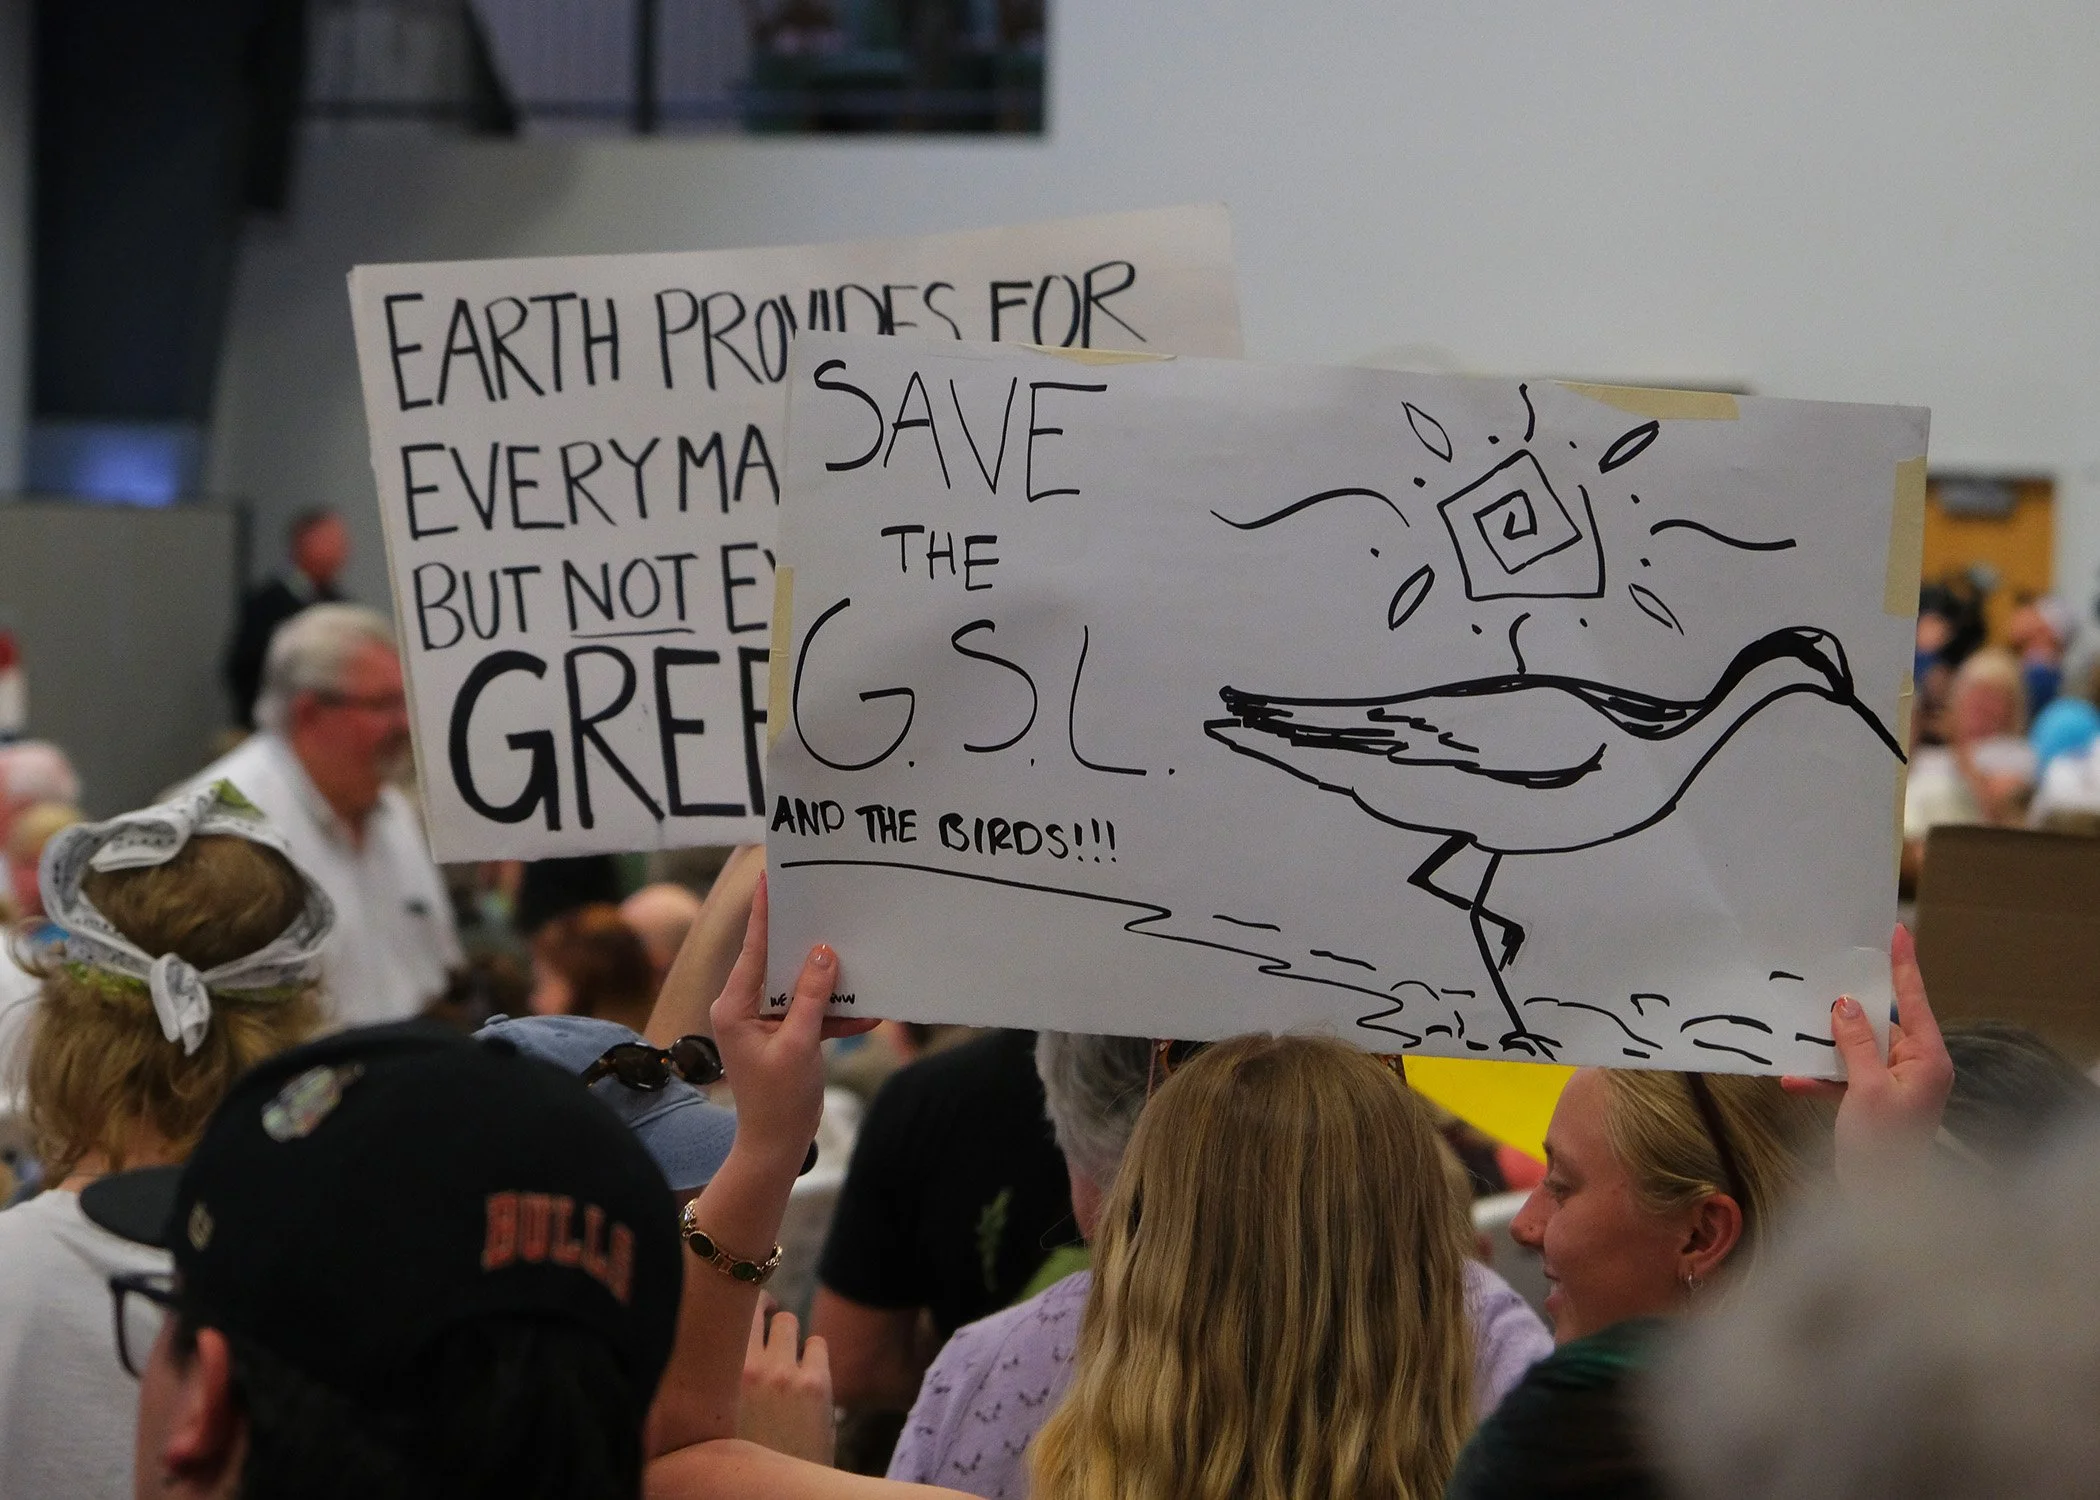 EARTH PROVIDES FOR
EVERY MA
BUT NOT
GREE
SAVE
THE
G.S.L.
AND THE BIRDS!!!
WE
BULLS